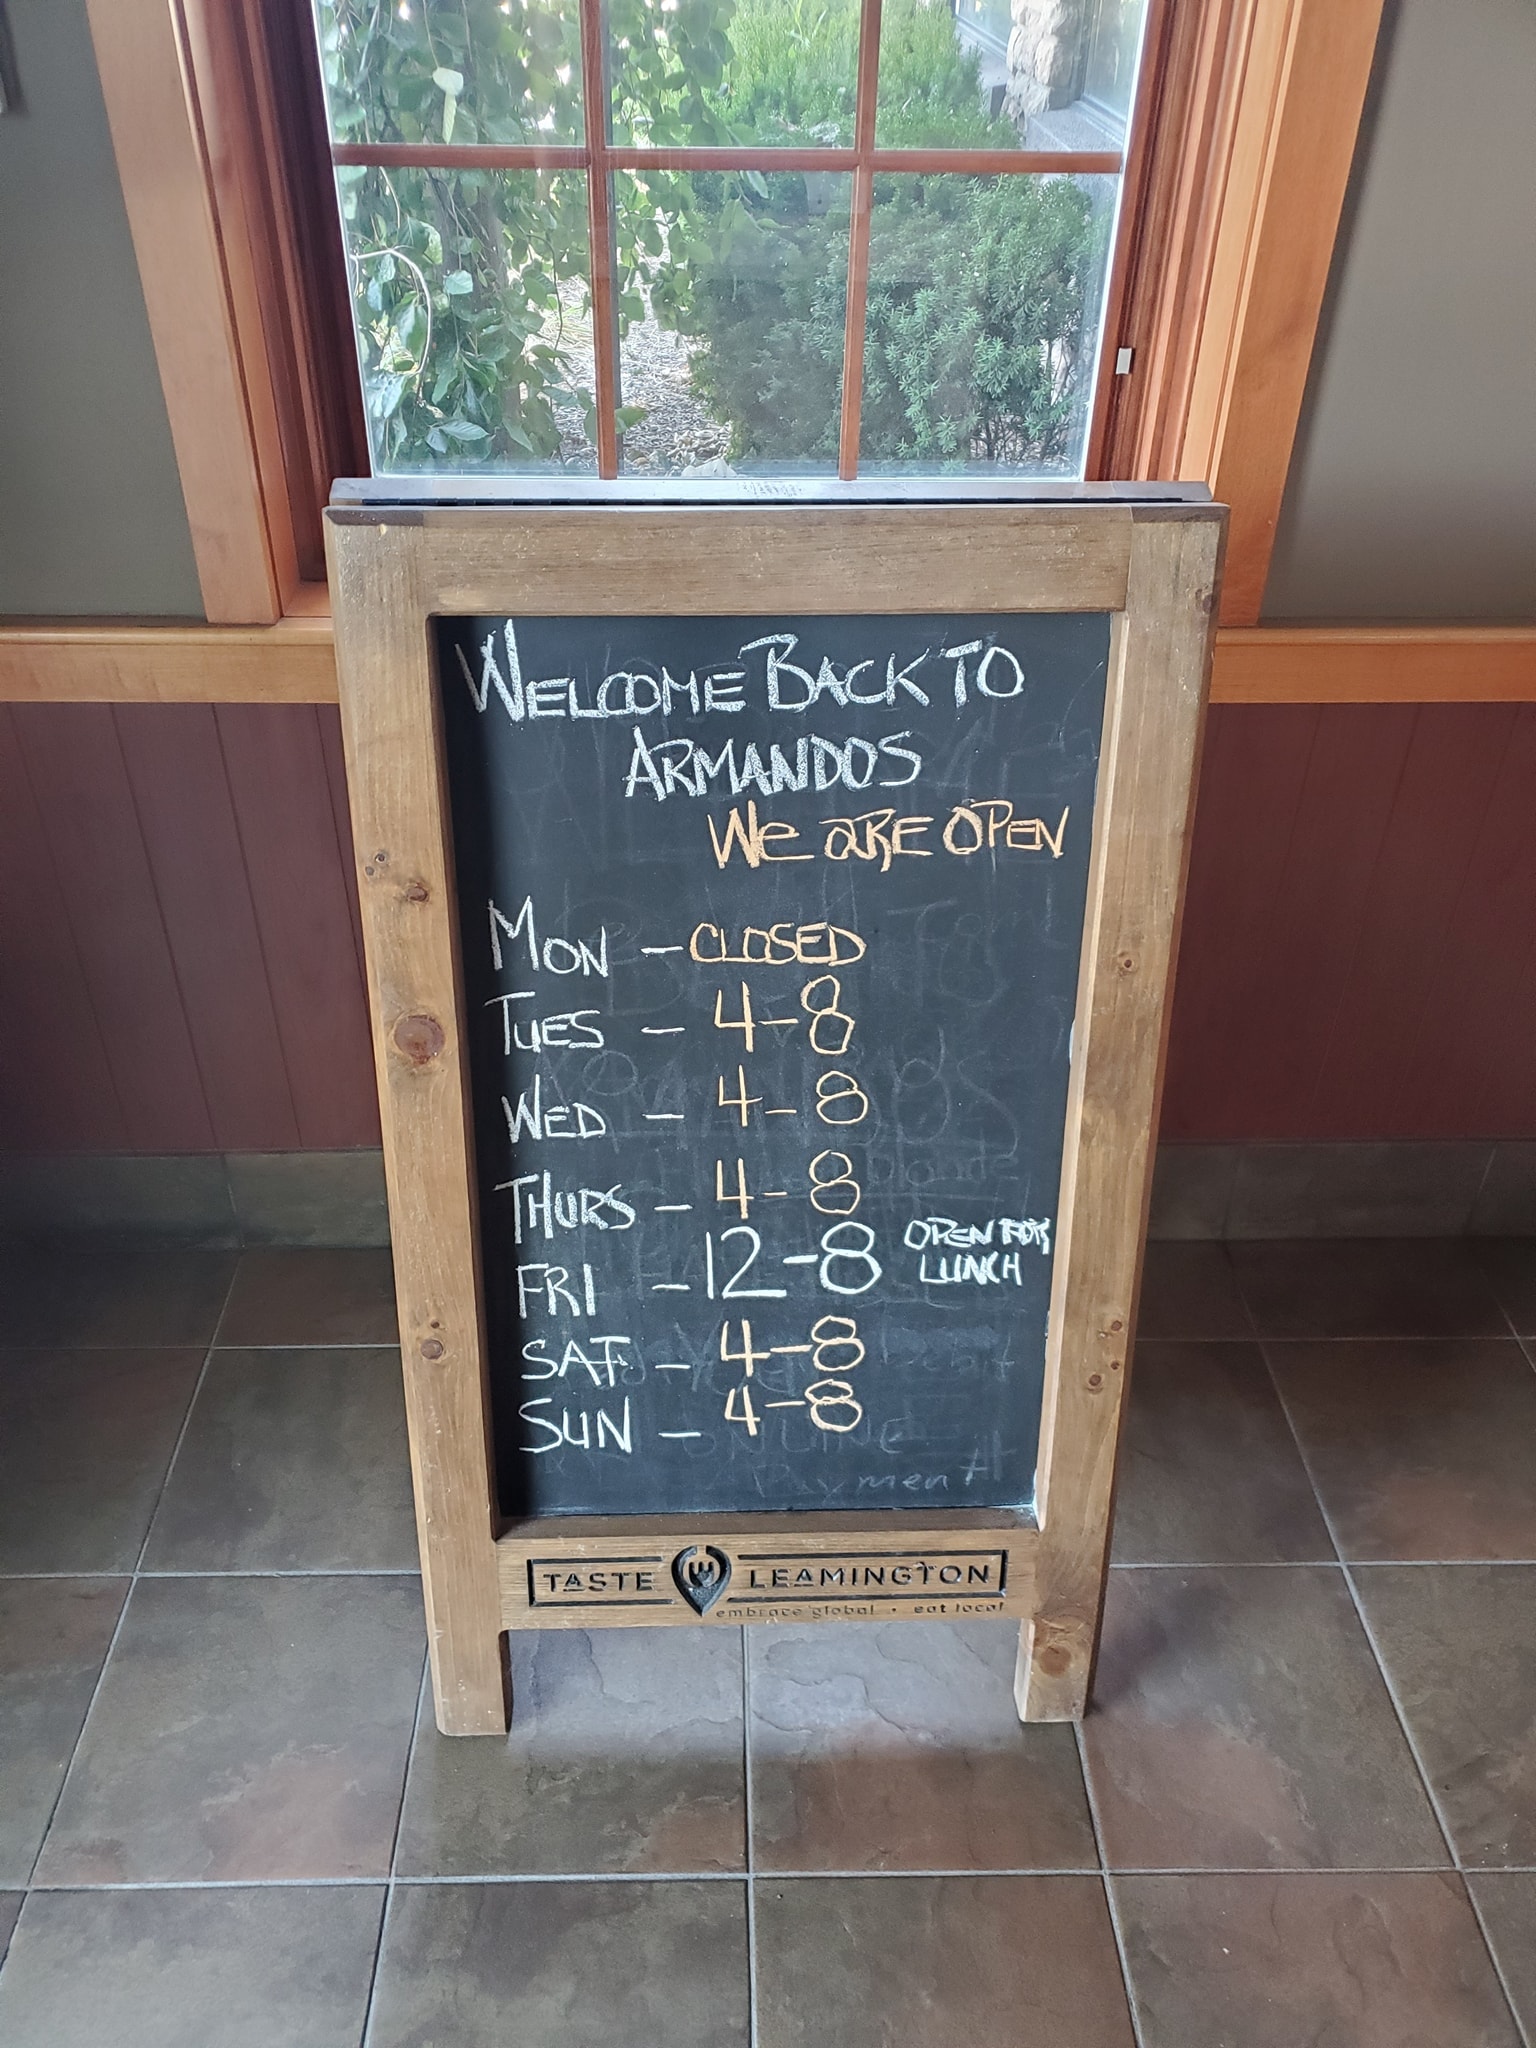 WELCOME BACK TO
ARMANDOS
We aRE OPEN
MON - CLOSED
TUES - 4-8
WED - 4-8
THURS - 4-8
FRI - 12-8 OPEN FOR
LUNCH
SAT - 4-8
SUN - 4-8
ONLINE
Payment
TASTE LEAMINGTON
embrace global • eat local